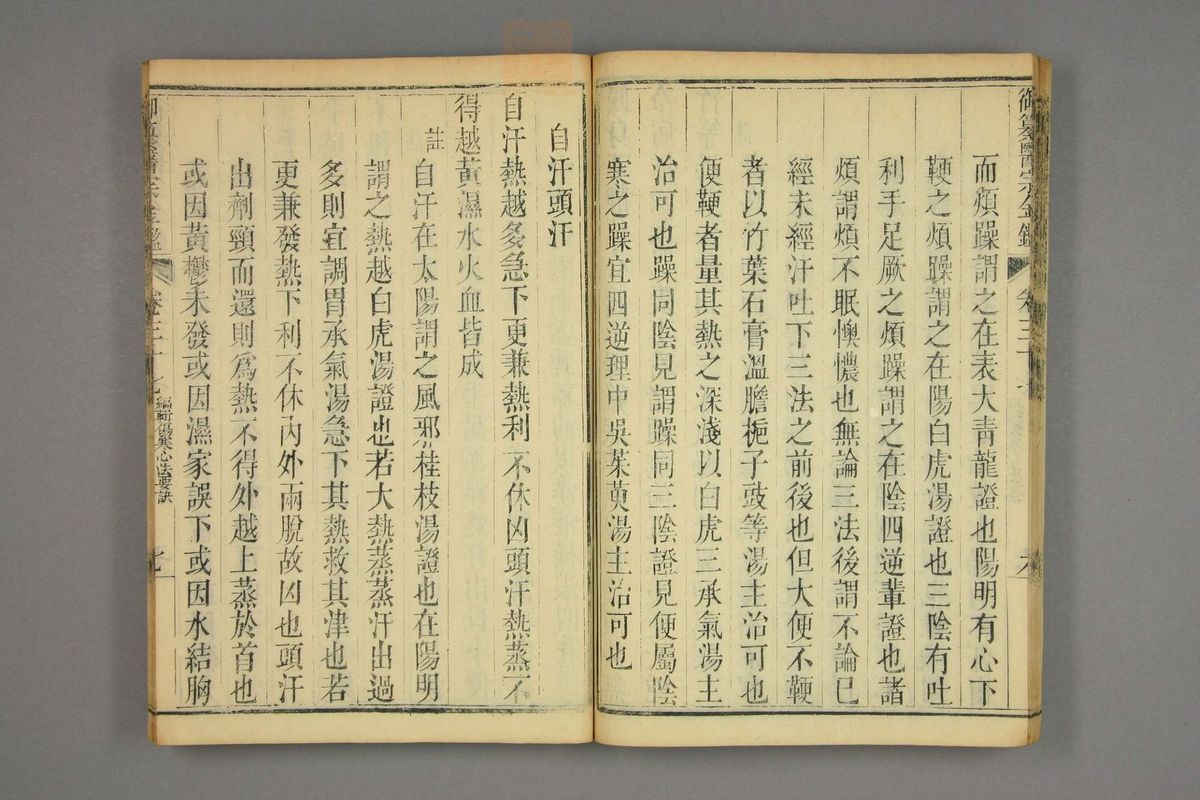 御纂醫宗金鑑
卷三十
六
而煩躁謂之在表大青龍證也陽明有心下
鞕之煩躁謂之在陽白虎湯證也三陰有吐
利手足厥之煩躁謂之在陰四逆輩證也諸
煩謂煩不眠懊憹也無論三法後謂不論已
經未經汗吐下三法之前後也但大便不鞕
者以竹葉石膏溫膽梔子豉等湯主治可也
便鞕者量其熱之深淺以白虎三承氣湯主
治可也躁同陰見謂躁同三陰證見便屬陰
寒之躁宜四逆理中吳茱萸湯主治可也
自汗頭汗
自汗熱越多急下更兼熱利不休凶頭汗熱蒸不
得越黃濕水火血皆成
註
自汗在太陽謂之風邪桂枝湯證也在陽明
謂之熱越白虎湯證也若大熱蒸蒸汗出過
多則宜調胃承氣湯急下其熱救其津也若
更兼發熱下利不休內外兩脫故凶也頭汗
出劑頸而還則為熱不得外越上蒸於首也
或因黃鬱未發或因濕家誤下或因水結胸
御纂醫宗金鑑
卷三十
編輯傷寒心法要訣
七